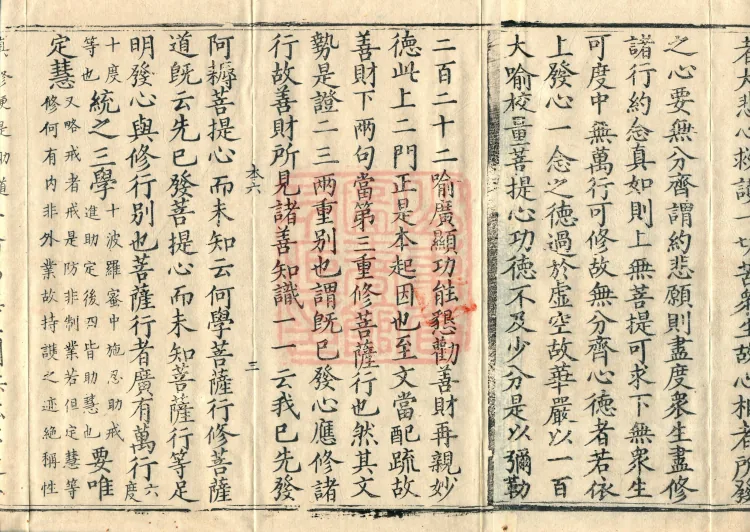 者大悲心救護一切苦衆生故心相者所發
之心要無分齊謂約悲願則盡度衆生盡修
諸行約念真如則上無菩提可求下無衆生
可度中無萬行可修故無分齊心德者若依
上發心一念之德過於虛空故華嚴以一百
大喻校量菩提心功德不及少分是以彌勒
二百二十二喻廣顯功能懇勸善財再親妙
德此上二門正是本起因也至文當配疏故
善財下兩句當第三重修菩薩行也然其文
勢是證二三兩重別也謂旣已發心應修諸
行故善財所見諸善知識一一云我已先發
本六 三
阿耨菩提心而未知云何學菩薩行修菩薩
道旣云先已發菩提心而未知菩薩行等足
明發心與修行別也菩薩行者廣有萬行六度
十度等也統之三學十波羅密中施忍助戒進助定後四皆助慧也要唯
定慧又略戒者戒是防非制業若但定慧等修何有內非外業故持護之迹絕稱性